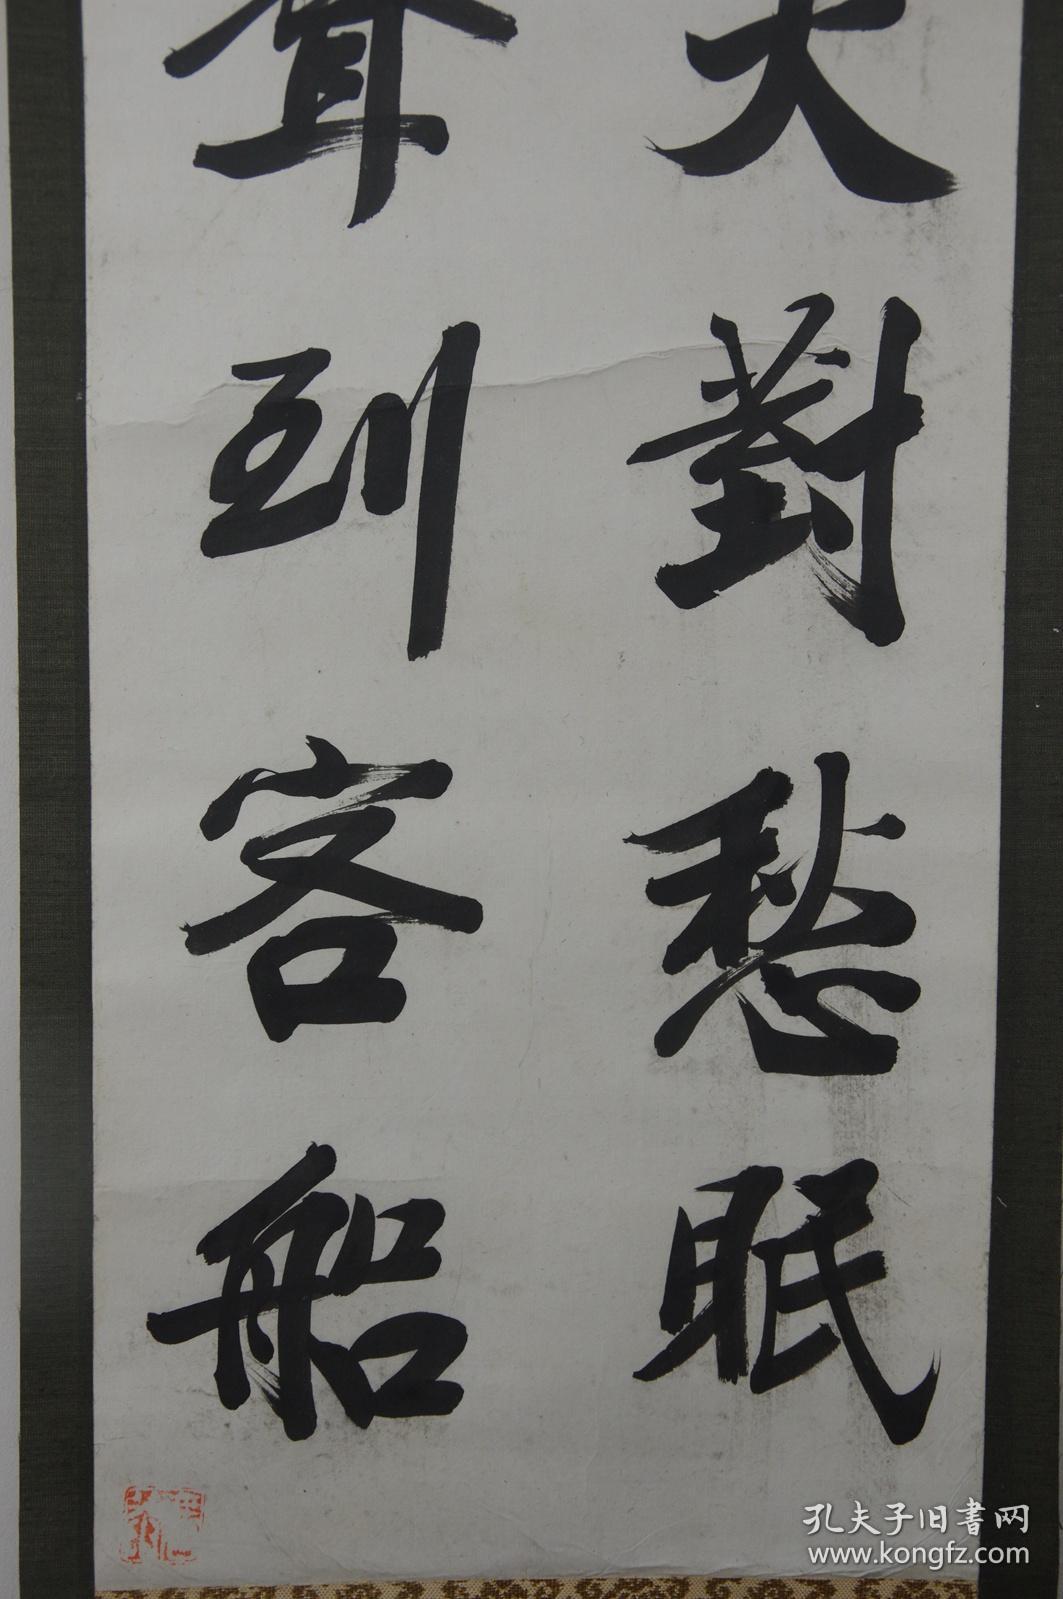 火對愁眠
聲到客船
孔夫子旧書网
www.kongfz.com